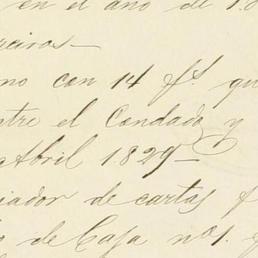 en el año de 18
no con 14 fs. qu
tre el Condado y
Abril 1829—
iador de cartas f
de Caja nos 1. y